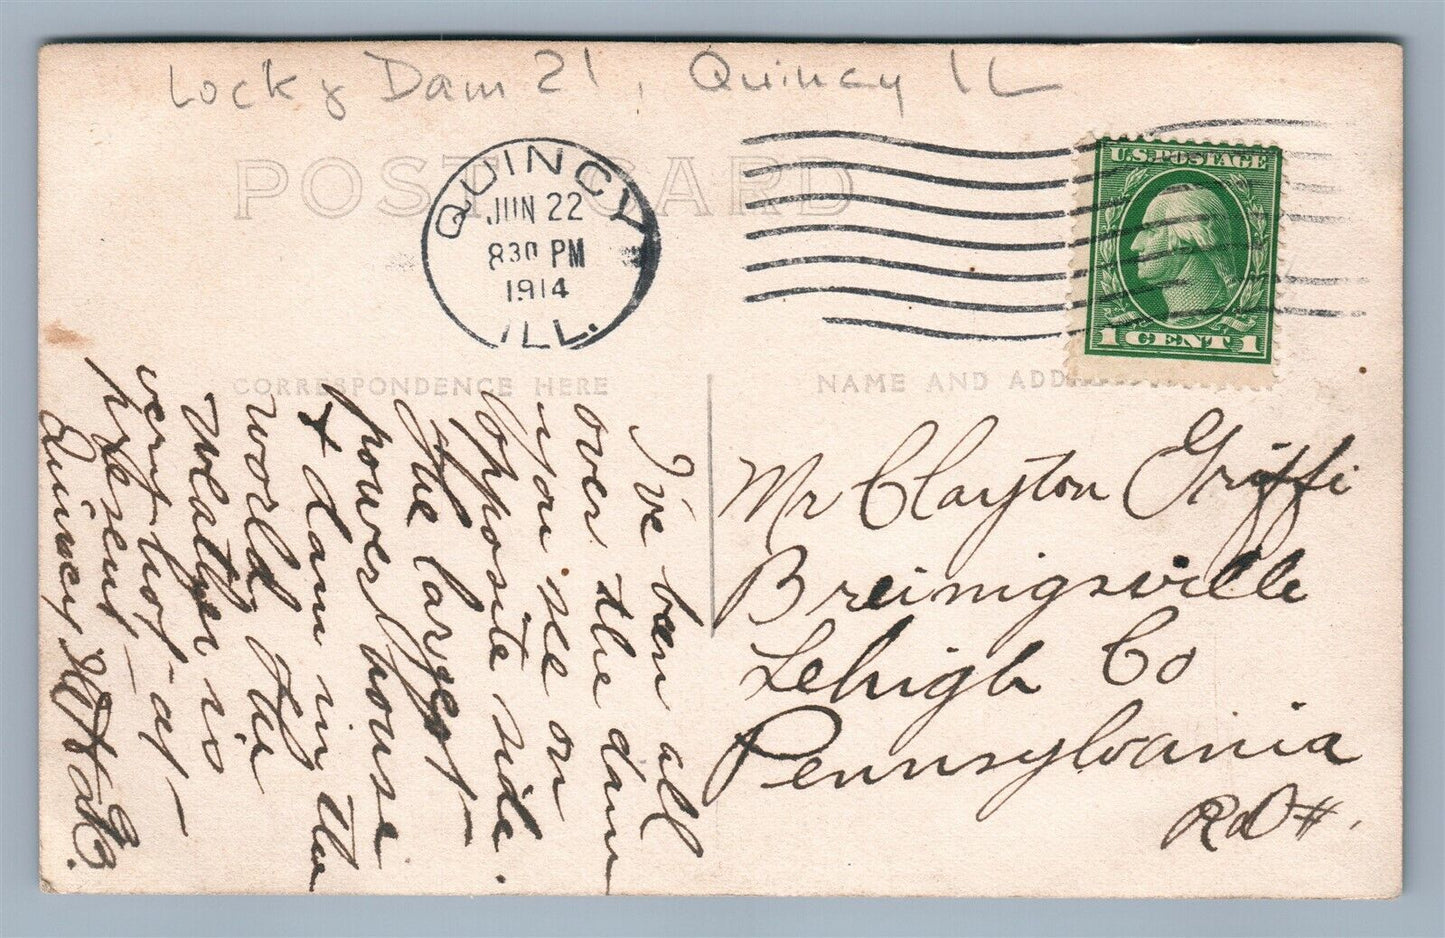 Lock & Dam 21, Quincy IL
POST CARD
QUINCY
JUN 22
830 PM
1914
ILL.
U.S. POSTAGE
1 CENT 1
CORRESPONDENCE HERE
NAME AND ADD
I've been all
over the dam
you see on
opposite side.
The largest
power house
+ dam in the
world. The
weather is
very hot at
present
Quincy Ill
Mr Clayton Griffi
Breinigsville
Lehigh Co
Pennsylvania